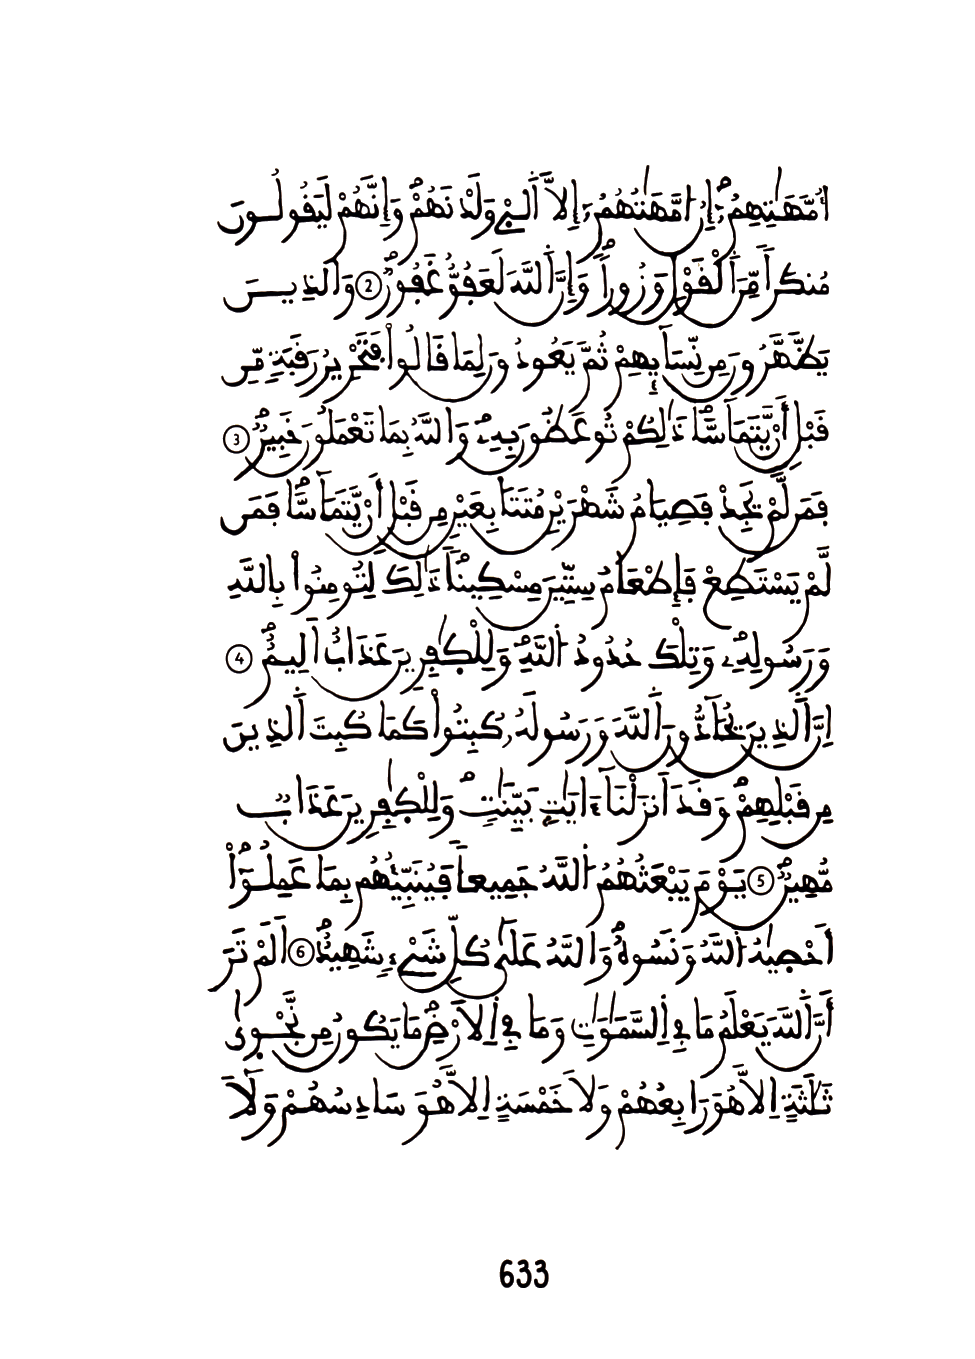 أُمَّهَٰتِهِمُۥٓۖ إِنُ ا۟مَّهَٰتُهُمُۥٓ إِلَّا اَ۬لَّٰٓـِٔے وَلَدْنَهُمْۖ وَإِنَّهُمْ لَيَقُولُونَ
مُنكَراٗ مِّنَ اَ۬لْقَوْلِ وَزُوراٗۖ وَإِنَّ اَ۬للَّهَ لَعَفُوٌّ غَفُورٞۖ 2 وَالذِينَ
يَظَّهَّرُونَ مِن نِّسَآئِهِمْ ثُمَّ يَعُودُونَ لِمَا قَالُواْ فَتَحْرِيرُ رَقَبَةٖ مِّن
قَبْلِ أَنْ يَّتَمَآسَّاۖ ذَٰلِكُمْ تُوعَظُونَ بِهِۦۖ وَاللَّهُ بِمَا تَعْمَلُونَ خَبِيرٞۖ 3
فَمَن لَّمْ يَجِدْ فَصِيَامُ شَهْرَيْنِ مُتَتَابِعَيْنِ مِن قَبْلِ أَنْ يَّتَمَآسَّاۖ فَمَن
لَّمْ يَسْتَطِعْ فَإِطْعَامُ سِتِّينَ مِسْكِيناٗۖ ذَٰلِكَ لِتُومِنُواْ بِاللَّهِ
وَرَسُولِهِۦۖ وَتِلْكَ حُدُودُ اُ۬للَّهِۖ وَلِلْكٰ۪فِرِينَ عَذَابٌ اَلِيمٌۖ 4
اِنَّ اَ۬لذِينَ يُحَآدُّونَ اَ۬للَّهَ وَرَسُولَهُۥ كُبِتُواْ كَمَا كُبِتَ اَ۬لذِينَ
مِن قَبْلِهِمْۖ وَقَدَ اَنزَلْنَآ ءَايَٰتِۢ بَيِّنَٰتٖۖ وَلِلْكٰ۪فِرِينَ عَذَابٞ
مُّهِينٞۖ 5 يَوْمَ يَبْعَثُهُمُ اُ۬للَّهُ جَمِيعاٗ فَيُنَبِّئُهُم بِمَا عَمِلُوٓاْۖ
أَحْصَيٰهُ اُ۬للَّهُ وَنَسُوهُۖ وَاللَّهُ عَلَيٰ كُلِّ شَےْءٖ شَهِيدٌۖ 6 اَلَمْ تَرَ
أَنَّ اَ۬للَّهَ يَعْلَمُ مَا فِے اِ۬لسَّمَٰوَٰتِ وَمَا فِے اِ۬لَارْضِۖ مَا يَكُونُ مِن نَّجْو۪يٰ
ثَلَٰثَةٍ اِلَّا هُوَ رَابِعُهُمْ وَلَا خَمْسَةٍ اِلَّا هُوَ سَادِسُهُمْ وَلَآ
633